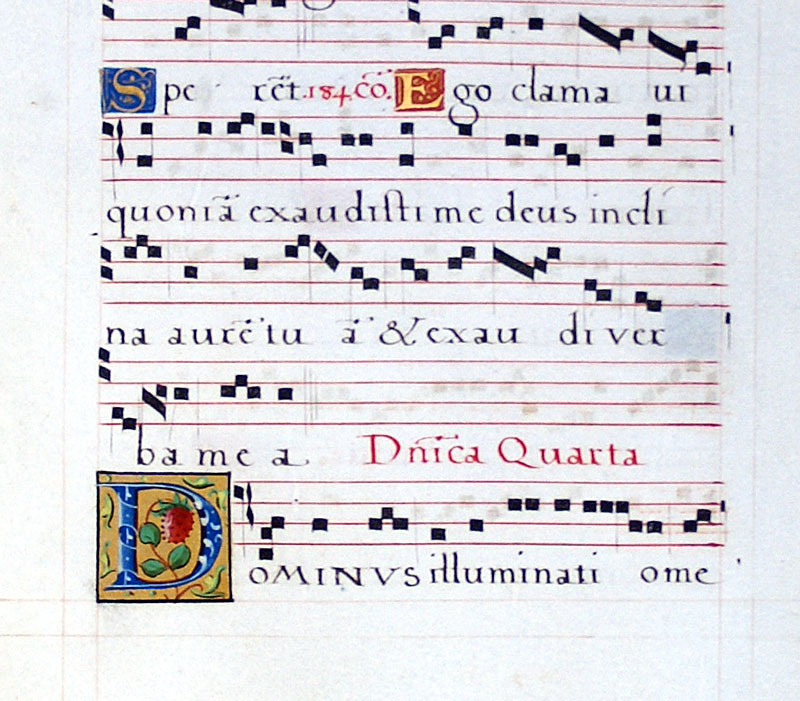 Spe rēt. 184 cō. Ego clama ui
quoniā exaudisti me deus incli
na aurē tu ā & exau di ver
ba me a. Dn̄ica Quarta
DOMINVS illuminati o me